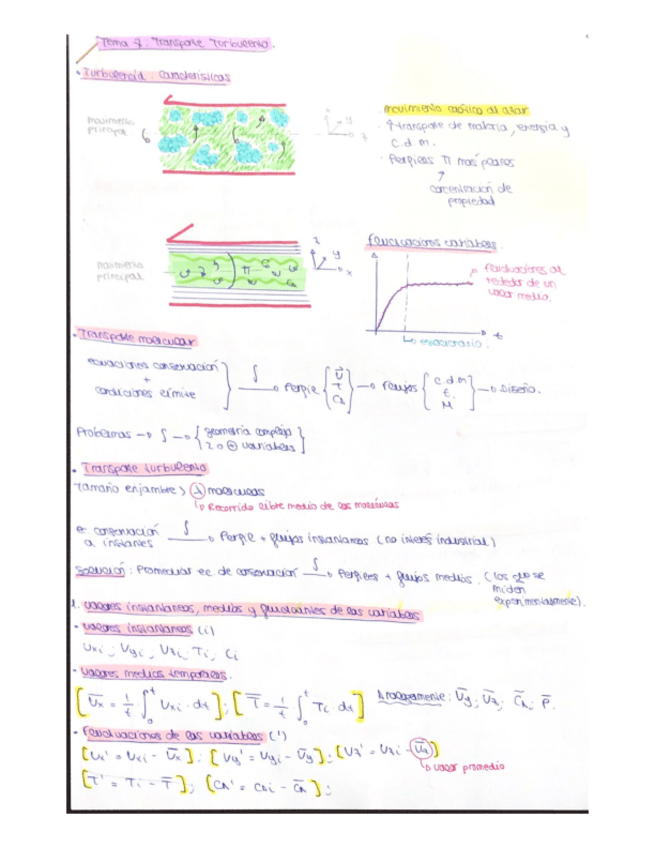 Tema 7: Transporte Turbulento.
• Turbulencia: características
movimiento
principal
movimiento caótico al azar
↑ transporte de materia, energía y
c.d.m.
· Perfiles π más planos
concentración de
propiedad
Fluctuaciones variables.
movimiento
principal
z
y
x
Fluctuaciones al
rededor de un
valor medio.
t
estacionario.
• Transporte molecular
ecuaciones conservación
+
condiciones límite
∫ → Perfil { U⃗ T CA } → Flujos { c.d.m E. M } → Diseño.
Problemas → ∫ → { geometría compleja
2 o ⊕ variables }
• Transporte turbulento
Tamaño enjambre > λ moléculas
↳ Recorrido libre medio de las moléculas
ec. conservación
a instantes
∫ → Perfil + flujos instantáneos (no interés industrial)
Solución: Promediar ec. de conservación ∫ → Perfiles + flujos medios. (los que se
miden
experimentalmente).
1. Valores instantáneos, medios y fluctuantes de las variables
• Valores instantáneos (i)
Uxi ; Uyi ; Uzi ; Ti ; Ci
- Valores medios temporales.
[U̅x = 1/t ∫₀ᵗ Uxi · dt] ; [T̅ = 1/t ∫₀ᵗ Ti · dt] Análogamente: U̅y ; U̅z ; C̅A ; P̅.
• Fluctuaciones de las variables (')
[Ux' = Uxi - U̅x] ; [Uy' = Uyi - U̅y] ; [Uz' = Uzi - U̅z]
↳ valor promedio
[T' = Ti - T̅] ; [CA' = CAi - C̅A] ;